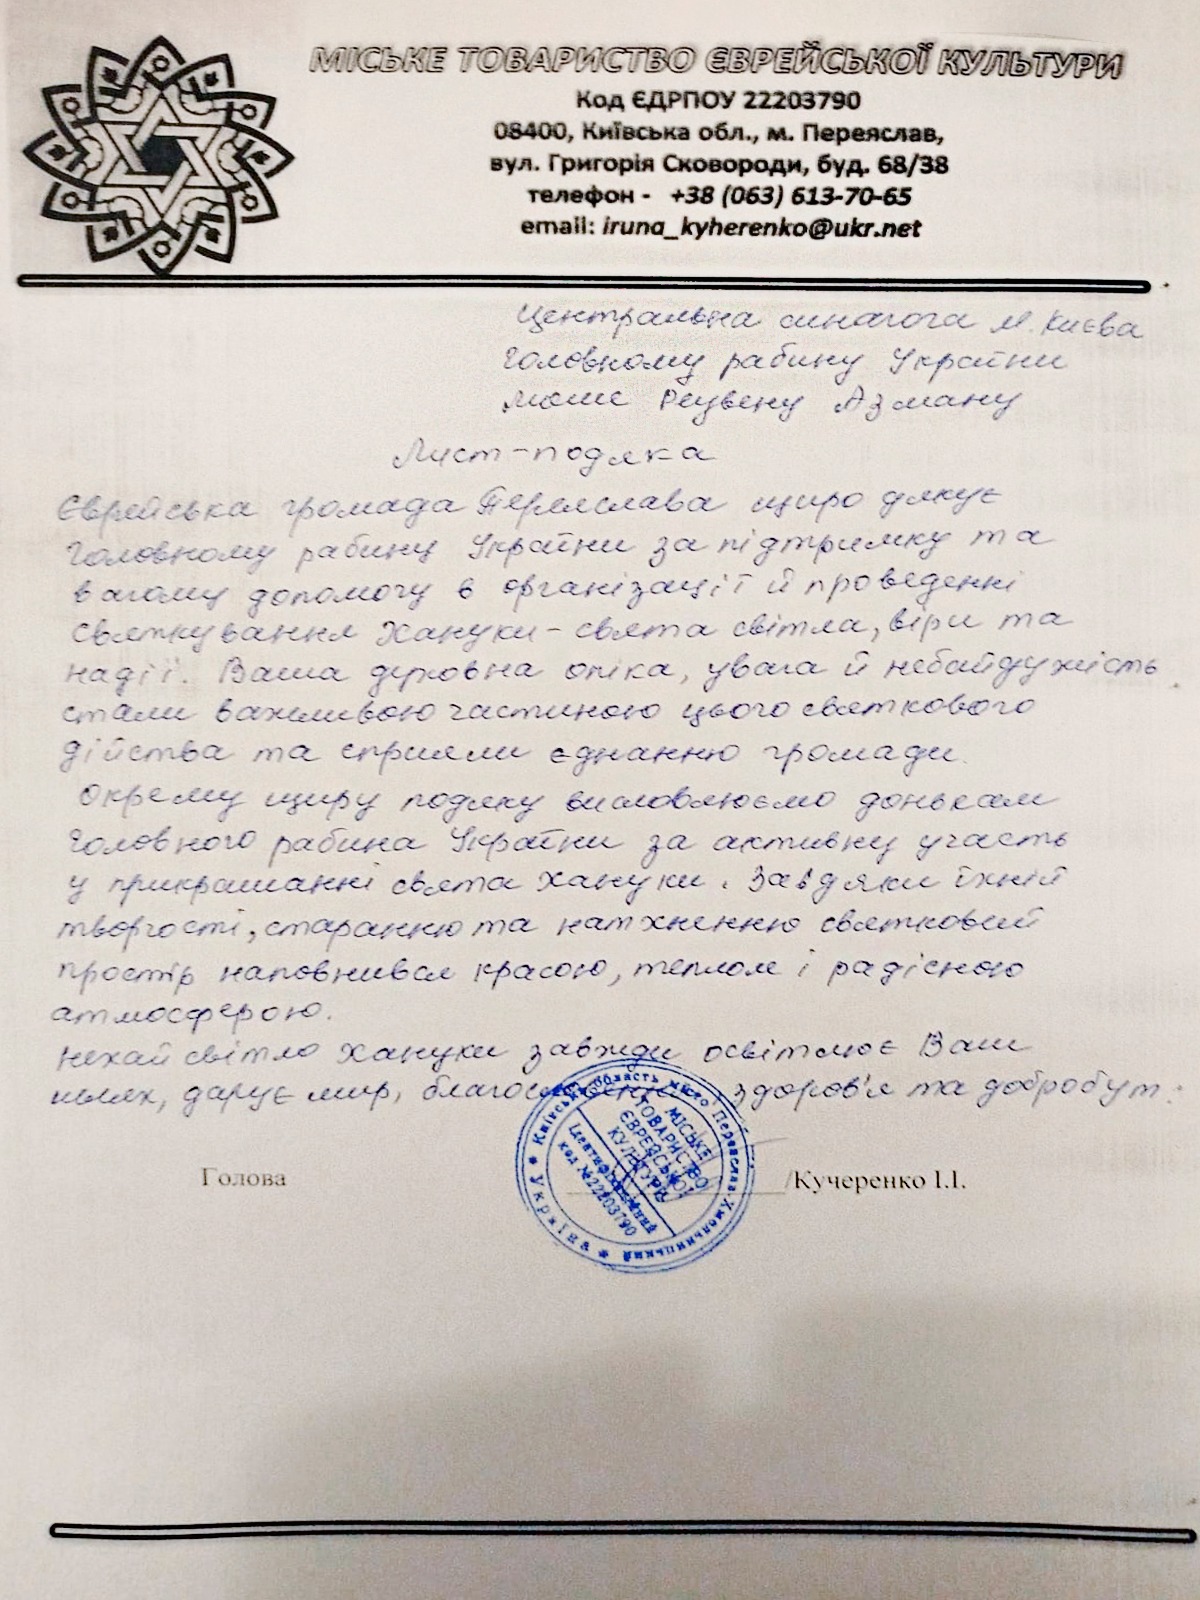 МІСЬКЕ ТОВАРИСТВО ЄВРЕЙСЬКОЇ КУЛЬТУРИ
Код ЄДРПОУ 22203790
08400, Київська обл., м. Переяслав,
вул. Григорія Сковороди, буд. 68/38
телефон - +38 (063) 613-70-65
email: iruna_kyherenko@ukr.net
Центральна синагога м. Києва
Головному рабину України
Моше Реувену Азману
Лист-подяка
Єврейська громада Переяслава щиро дякує
Головному рабину України за підтримку та
вагому допомогу в організації й проведенні
святкування Хануки - свята світла, віри та
надії. Ваша духовна опіка, увага й небайдужість
стали важливою частиною цього святкового
дійства та сприяли єднанню громади.
Окрему щиру подяку висловлюємо донькам
Головного рабина України за активну участь
у прикрашанні свята Хануки. Завдяки їхній
творчості, старанню та натхненню святковий
простір наповнився красою, теплом і радісною
атмосферою.
Нехай світло Хануки завжди освітлює Ваш
шлях, дарує мир, здоров'я та добробут.
Голова /Кучеренко І.І.
Україна * Київська область місто Переяслав-Хмельницький *
МІСЬКЕ
ТОВАРИСТВО
ЄВРЕЙСЬКОЇ
КУЛЬТУРИ
Ідентифікаційний
код №22203790